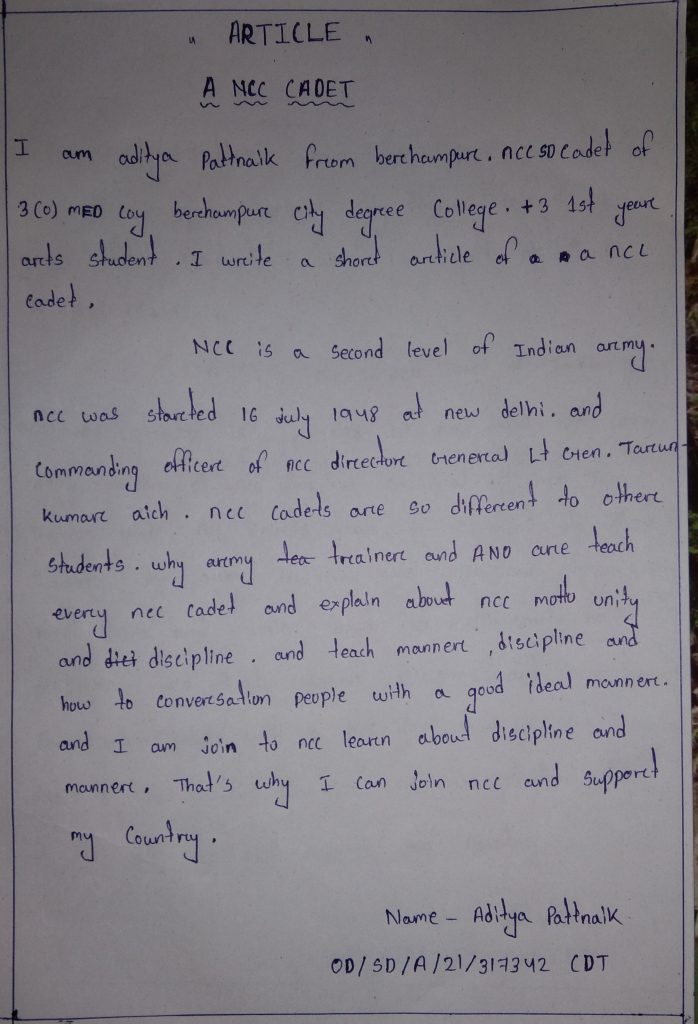 " ARTICLE "
A NCC CADET
I am aditya Pattnaik from berhampur. ncc SD Cadet of
3(0) MED Coy berhampur city degree College. +3 1st year
arts student. I write a short article of a a ncc
cadet.
NCC is a second level of Indian army.
ncc was started 16 july 1948 at new delhi. and
Commanding officer of ncc director General Lt Gen. Tarun-
kumar aich. ncc cadets are so different to other
students. why army tea trainer and ANO are teach
every ncc cadet and explain about ncc motto unity
and dici discipline. and teach manner, discipline and
how to conversation people with a good ideal manner.
and I am join to ncc learn about discipline and
manner. That's why I can join ncc and support
my Country.
Name - Aditya Pattnaik
OD/SD/A/21/317342 CDT